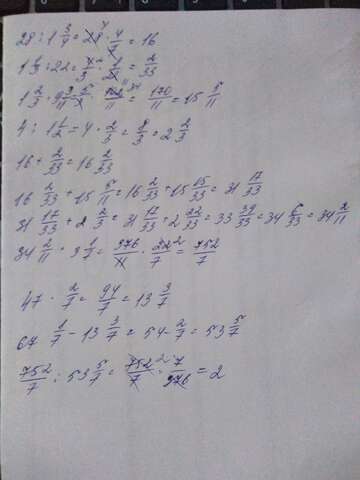 28 : 1 3/4 = 28 · 4/7 = 16
1 1/3 : 22 = 4/3 · 1/22 = 2/33
1 2/3 · 9 3/11 = 5/3 · 102/11 = 170/11 = 15 5/11
4 : 1 1/2 = 4 · 2/3 = 8/3 = 2 2/3
16 + 2/33 = 16 2/33
16 2/33 + 15 5/11 = 16 2/33 + 15 15/33 = 31 17/33
31 17/33 + 2 2/3 = 31 17/33 + 2 22/33 = 33 39/33 = 34 6/33 = 34 2/11
34 2/11 · 3 1/7 = 376/11 · 22/7 = 752/7
47 · 2/7 = 94/7 = 13 3/7
67 1/7 - 13 3/7 = 54 - 2/7 = 53 5/7
752/7 : 53 5/7 = 752/7 · 7/376 = 2